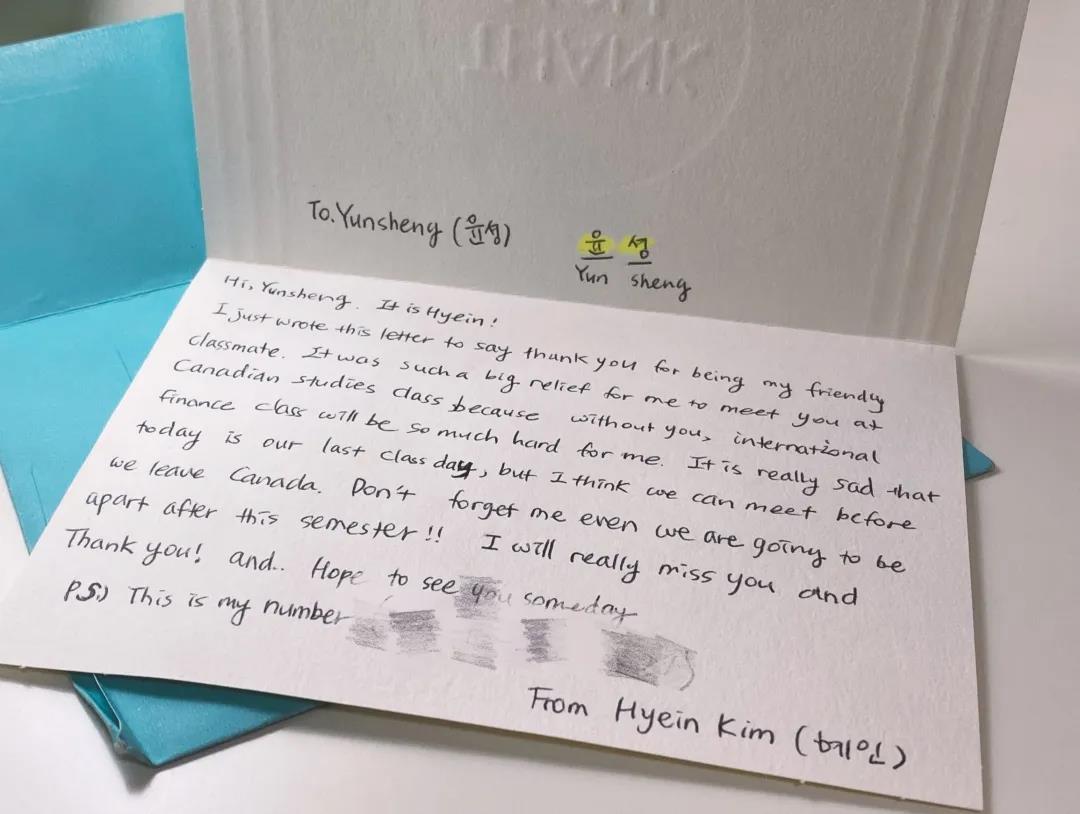 THANK
To. Yunsheng (윤성)
윤 성
Yun sheng
Hi, Yunsheng. It is Hyein!
I just wrote this letter to say thank you for being my friendly
classmate. It was such a big relief for me to meet you at
Canadian studies class because without you, international
finance class will be so much hard for me. It is really sad that
today is our last class day, but I think we can meet before
we leave Canada. Don't forget me even we are going to be
apart after this semester!! I will really miss you and
Thank you! and.. Hope to see you someday
P.S.) This is my number
From Hyein Kim (혜인)